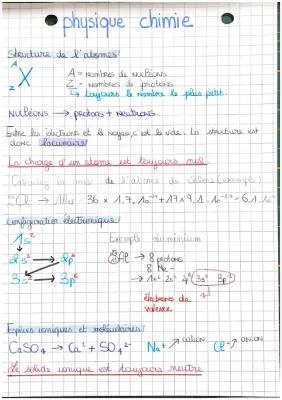 physique chimie
Structure de l'atomes
A
X
Z
A = nombres de nucléons
Z = nombres de protons
↳ toujours le nombre le plus petit.
Nucléons → protons + neutrons.
Entre les électrons et le noyau, c'est le vide. La structure est
donc lacunaire
La charge d'un atome est toujours nul.
de l'atome de chlore (exemple)
Cl → 36 × 1,7.10 + 17 × 9,1.10
configuration électronique
1s²
2s² → 2p⁶
3s² → 3p⁶
Exemple aluminium
Al → 8 protons
→ 1s² 2s² 3s² 3p
électrons de
valence
Espèces ioniques et moléculaires
CaSO₄ → Ca² + SO₄²⁻
Na+ cation
Cl⁻ anion
Le solide ionique est toujours neutre